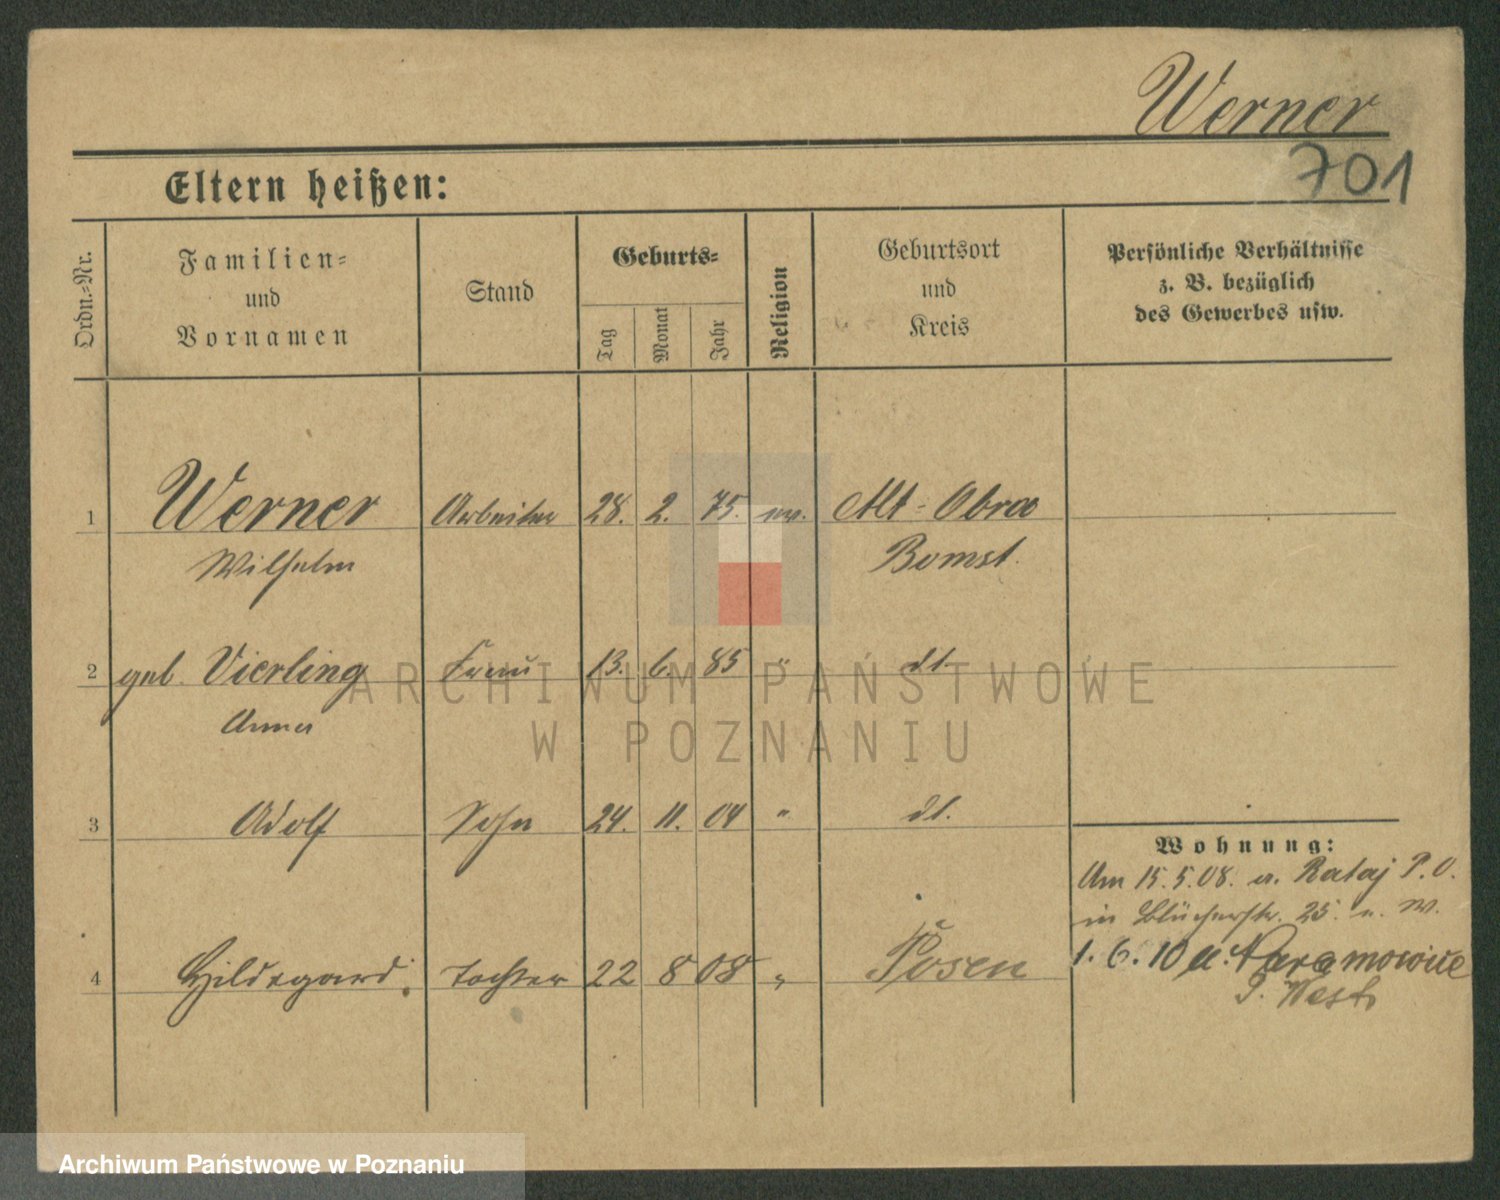 Werner
701
Eltern heißen:
Ordn.-Nr.
Familien-
und
Vornamen
Stand
Geburts-
Tag
Monat
Jahr
Religion
Geburtsort
und
Kreis
Persönliche Verhältnisse
z. B. bezüglich
des Gewerbes usw.
1 Werner Arbeiter 28. 2. 75. ev. Alt-Obra
Wilhelm Bomst.
2 geb. Vierling Frau 13. 6. 85 " dt.
Anna
3 Adolf Sohn 24. 11. 04 " dt.
Wohnung:
Am 15.5.08. a. Rataj P.O.
in Blücherstr. 25. n. W.
4 Hildegard. Tochter 22 8 08 " Posen
1.6.10 a. Naramowice
P. West
ARCHIWUM PAŃSTWOWE
W POZNANIU
Archiwum Państwowe w Poznaniu